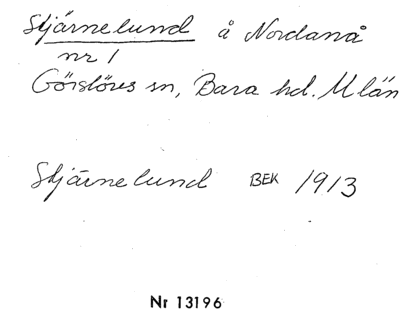 Stjärnelund å Nordanå
nr 1
Görslövs sn, Bara hd. M län
Stjärnelund BEK 1913
Nr 13196